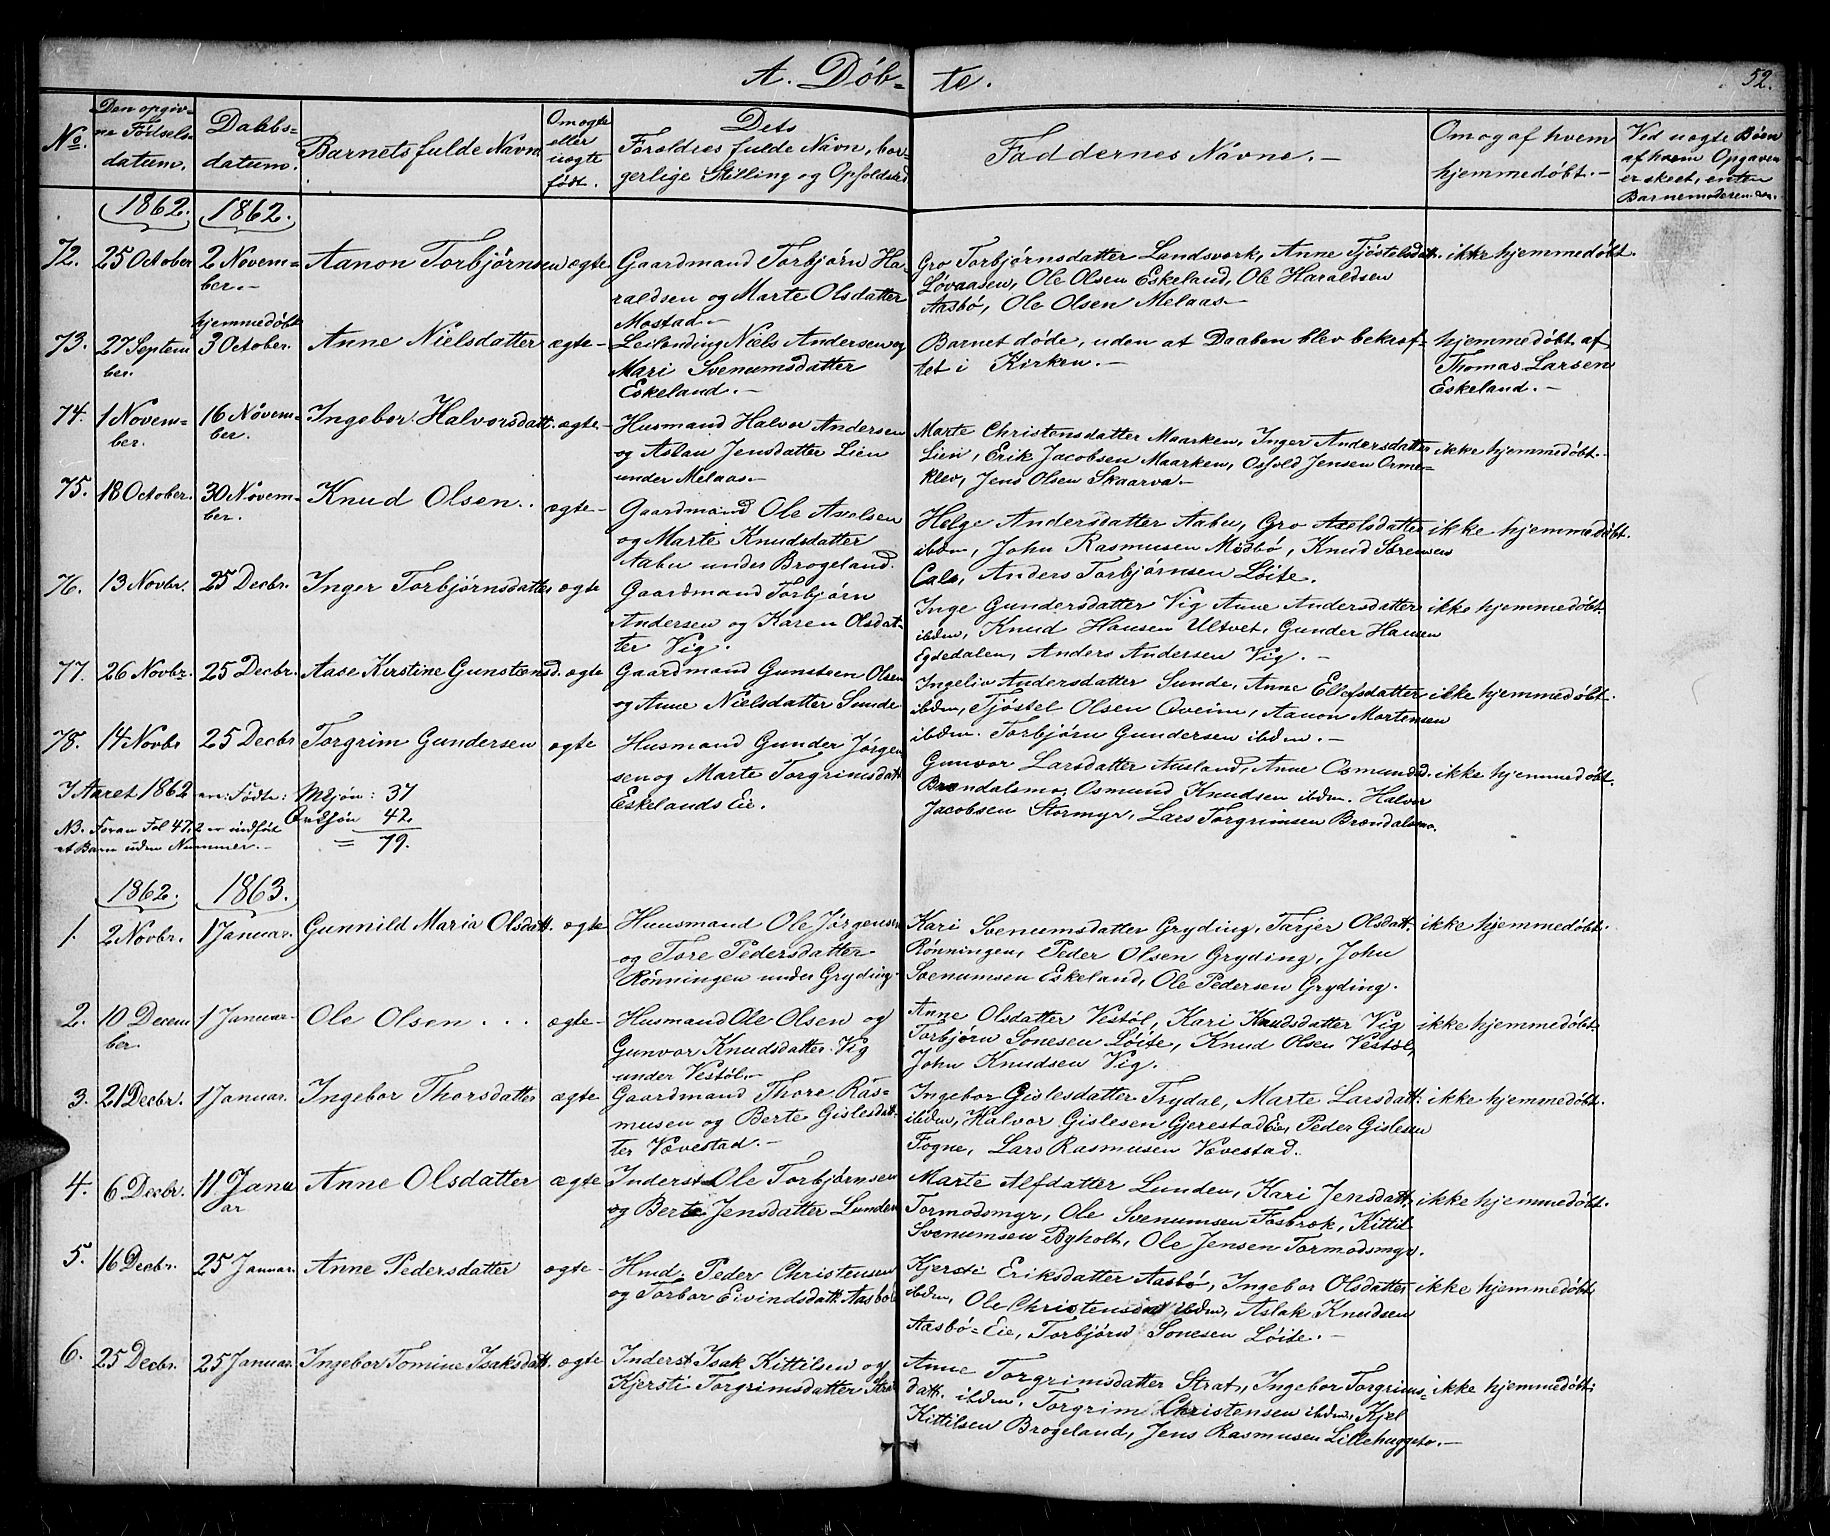 A. Döb-
te.
52.
No.
Den opgiv-
ne Födsels-
datum.
Daabs-
datum.
Barnets fulde Navn
Om ægte
eller
uægte
födt.
Dets
Foreldres fulde Navn, bor-
gerlige Stilling og Opholdsted
Faddernes Navne. -
Om og af hvem
hjemmedöbt. -
Ved uægte Börn
af hvem Opgaven
er skeet, enten
Barnemoderen
1862.
1862.
72.
25 October
2 Novem-
ber. -
Aanon Torbjörnsen
ægte
Gaardmand Torbjörn Ha-
raldsen og Marte Olsdatter
Mostad. -
Gro Torbjörnsdatter Landsverk, Anne Tjöstelsdatt.
Lövaasen, Ole Olsen Eskeland, Ole Haraldsen
Aasbö, Ole Olsen Melaas -
ikke hjemmedöbt.
73.
27 Septem
ber.
hjemmedöbt
3 October.
Anne Nielsdatter
ægte -
Leilending Niels Andersen og
Mari Svenumsdatter
Eskeland. -
Barnet döde, uden at Daaben blev bekræf-
tet i Kirken. -
hjemmedöbt af
Thomas Larsen
Eskeland. -
74.
1 Novem-
ber.
16 Novem-
ber.
Ingebor Halvorsdatt.
ægte -
Husmand Halvor Andersen
og Aslau Jensdatter Lien
under Melaas. -
Marte Christensdatter Maarken, Inger Andersdatter
Lien, Erik Jacobsen Maarken, Osfold Jensen Orme-
klev, Jens Olsen Skaarva. -
ikke hjemmedöbt. -
75.
18 October.
30 Novem-
ber.
Knud Olsen. .
ægte -
Gaardmand Ole Axelsen
og Marte Knudsdatter
Aabu under Brogeland.
Helge Andersdatter Aabu, Gro Axelsdatter
ibdm, John Rasmusen Midbö, Knud Sörensen
Cale, Anders Torbjörnsen Löite.
ikke hjemmedöbt.
76.
13 Novbr.
25 Decbr.
Inger Torbjörnsdatter
ægte
Gaardmand Torbjörn
Andersen og Karen Olsdat-
ter Vig.
Inge Gundersdatter Vig Anne Andersdatter
ibdm, Knud Hansen Ultvet, Gunder Hansen
Egdedalen, Anders Andersen Vig. -
ikke hjemmedöbt.
77.
26 Novbr.
25 Decbr.
Aase Kirstine Gunstensd.
ægte
Gaardmand Gunsteen Olsen
og Anne Nielsdatter Sunde
Ingeliv Andersdatter Sunde, Anne Ellefsdatter
ibdm, Tjöstel Olsen Qveim, Aanon Mortensen
ibdm. Torbjörn Gundersen ibdm. -
ikke hjemmedöbt.
78.
14 Novbr
25 Decbr
Torgrim Gundersen
ægte
Husmand Gunder Jörgen
sen og Marte Torgrimsdatt
Eskelands Eie.
Gunvor Larsdatter Ausland, Anne Osmundsd.
Brændalsmo, Osmund Knudsen ibdm. Halvor
Jacobsen Stormyr, Lars Torgrimsen Brændalsmo.
ikke hjemmedöbt.
I Aaret 1862 ere Födte: Mkjön: 37
Qvkjön 42.
= 79.
NB. Foran Fol 47,2 er indfört
et Barn uden Nummer. -
1862.
1863.
1.
2 Novbr.
1 Januar.
Gunnild Maria Olsdatt.
ægte
Huusmand Ole Jörgensen
og Tore Pedersdatter
Rönningen under Gryding.
Kari Svenumsdatter Gryding, Tarjer Olsdatt.
Rönningen, Peder Olsen Gryding, John
Svenumsen Eskeland, Ole Pedersen Gryding.
ikke hjemmedöbt.
2.
10 Decem
ber.
1 Januar
Ole Olsen . . .
ægte -
Husmand Ole Olsen og
Gunvor Knudsdatter Vig
under Vestöl. -
Anne Olsdatter Vestöl, Kari Knudsdatter Vig
Torbjörn Sonesen Löite, Knud Olsen Vestöl,
John Knudsen Vig.
ikke hjemmedöbt
3.
21 Decbr.
1 Januar.
Ingebor Thorsdatter
ægte
Gaardmand Thore Ras-
musen og Berte Gislesdat-
ter Vævestad. -
Ingebor Gislesdatter Trydal, Marte Larsdatt.
ibdm, Halvor Gislesen Gjerestad Eie, Peder Gislesen
Fogne, Lars Rasmusen Vævestad.
ikke hjemmedöbt.
4.
6 Decbr.
11 Janu
ar
Anne Olsdatter
ægte
Inderst Ole Torbjörnsen
og Berte Jensdatter Lunden
Marte Alfdatter Lunden, Kari Jensdatt.
Tormodsmyr, Ole Svenumsen Fosbræk, Kittil
Svenumsen Byholt, Ole Jensen Tormodsmyr.
ikke hjemmedöbt.
5.
16 Decbr.
25 Januar.
Anne Pedersdatter
ægte -
Hmd Peder Christensen
og Torbor Eivindsdatt. Aasbö
Kjersti Eriksdatter Aasbö, Ingebor Olsdatter
ibdm, Ole Christensen ibdm, Aslak Knudsen
Aasbö-Eie, Torbjörn Sonesen Löite. -
ikke hjemmedöbt
6.
25 Decbr.
25 Januar.
Ingebor Tomine Isaksdatt.
ægte
Inderst Isak Kittilsen og
Kjersti Torgrimsdatter Strat
Anne Torgrimsdatter Strat, Ingebor Torgrims-
datt. ibdm, Torgrim Christensen ibdm, Kjel
Kittilsen Brogeland, Jens Rasmusen Lillehuggeto. -
ikke hjemmedöbt.